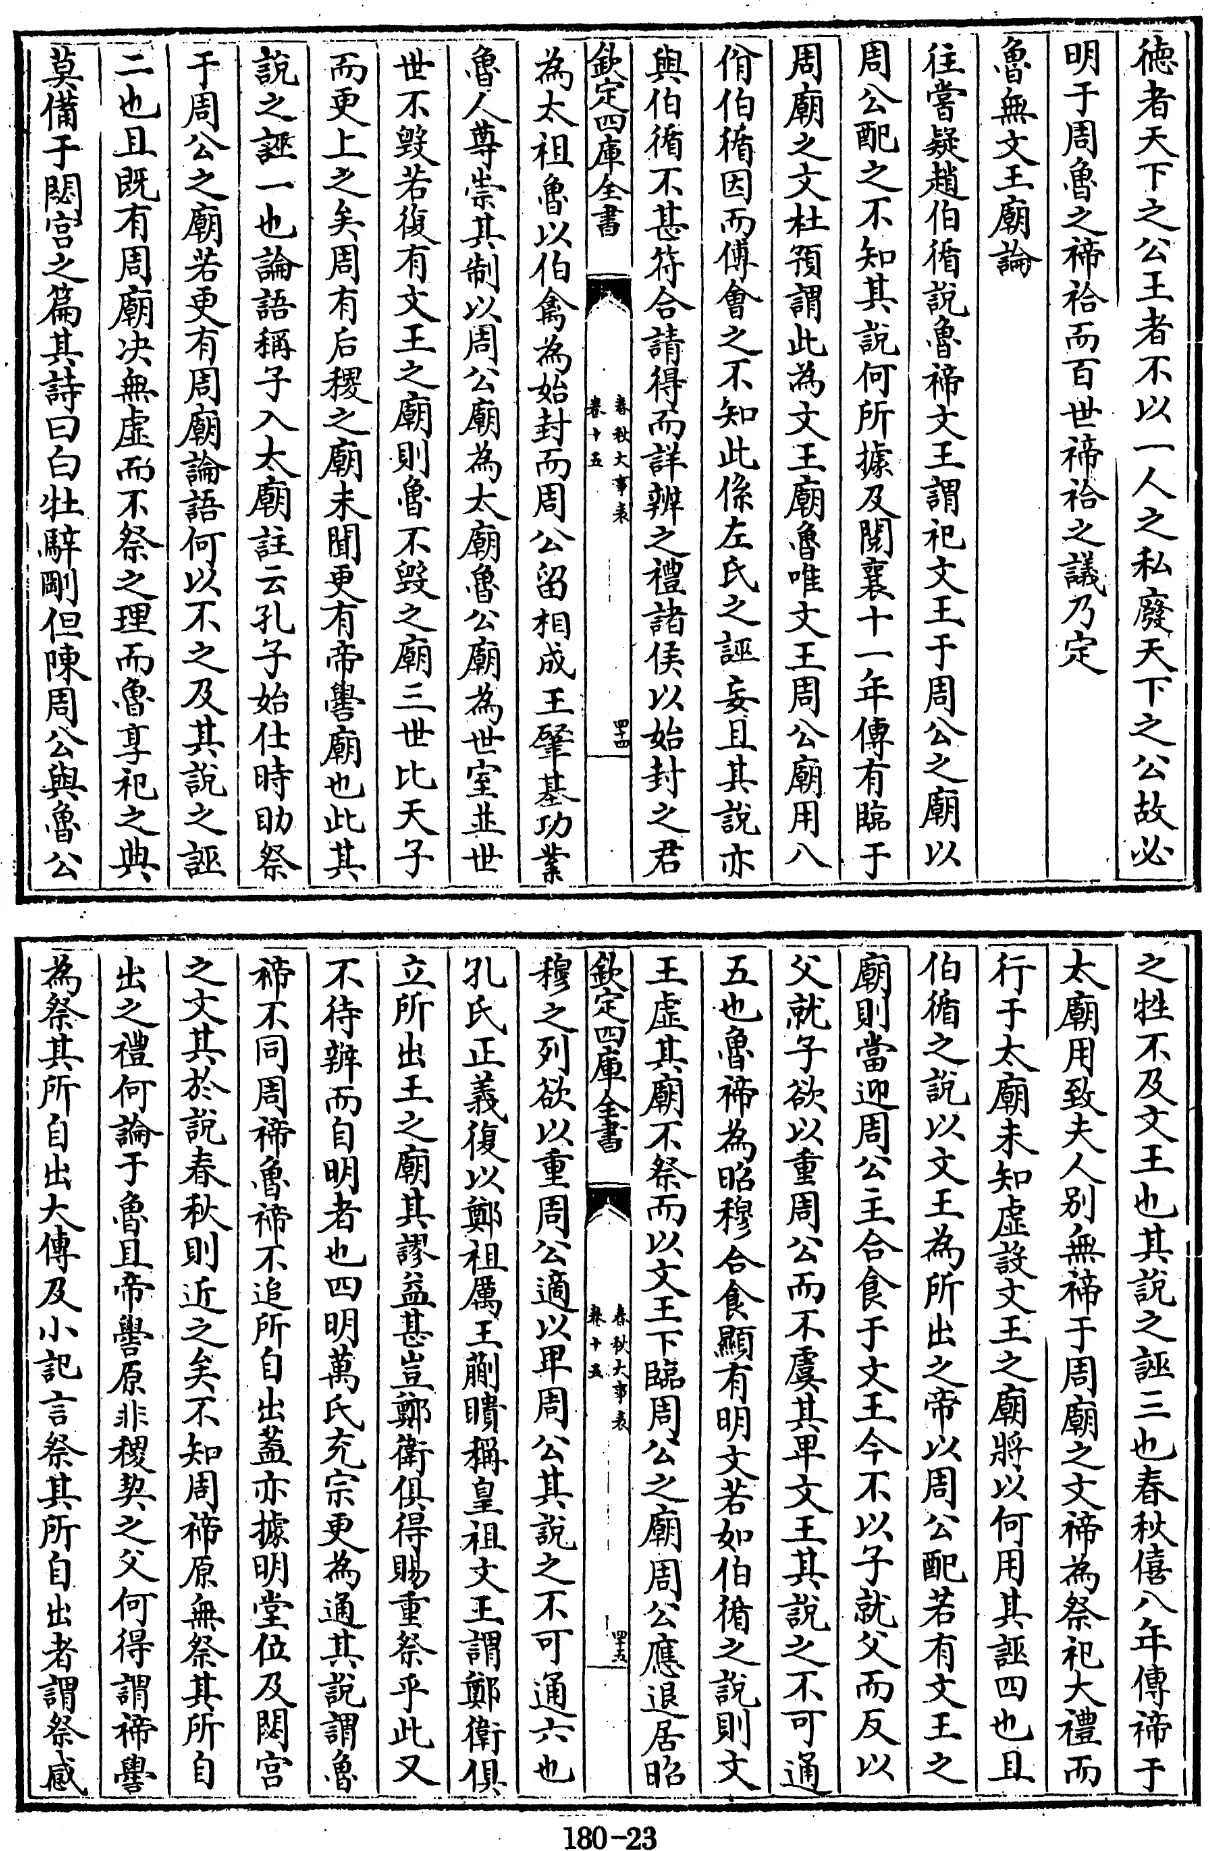 德者天下之公王者不以一人之私廢天下之公故必
明于周魯之禘祫而百世禘祫之議乃定
魯無文王廟論
往嘗疑趙伯循說魯禘文王謂祀文王于周公之廟以
周公配之不知其說何所據及閱襄十一年傳有臨于
周廟之文杜預謂此為文王廟魯唯文王周公廟用八
佾伯循因而傅會之不知此係左氏之誣妄且其說亦
與伯循不甚符合請得而詳辨之禮諸侯以始封之君
欽定四庫全書
春秋大事表
卷十五
四十四
為太祖魯以伯禽為始封而周公留相成王肇基功業
魯人尊崇其制以周公廟為太廟魯公廟為世室並世
世不毀若復有文王之廟則魯不毀之廟三世比天子
而更上之矣周有后稷之廟未聞更有帝嚳廟也此其
說之誣一也論語稱子入太廟註云孔子始仕時助祭
于周公之廟若更有周廟論語何以不之及其說之誣
二也且既有周廟决無虛而不祭之理而魯享祀之典
莫備于閟宮之篇其詩曰白牡騂剛但陳周公與魯公
之牲不及文王也其說之誣三也春秋僖八年傳禘于
太廟用致夫人别無禘于周廟之文禘為祭祀大禮而
行于太廟未知虛設文王之廟將以何用其誣四也且
伯循之說以文王為所出之帝以周公配若有文王之
廟則當迎周公主合食于文王今不以子就父而反以
父就子欲以重周公而不虞其卑文王其說之不可通
五也魯禘為昭穆合食顯有明文若如伯循之說則文
王虛其廟不祭而以文王下臨周公之廟周公應退居昭
欽定四庫全書
春秋大事表
卷十五
四十五
穆之列欲以重周公適以卑周公其說之不可通六也
孔氏正義復以鄭祖厲王蒯聵稱皇祖文王謂鄭衛俱
立所出王之廟其謬益甚豈鄭衛俱得賜重祭乎此又
不待辨而自明者也四明萬氏充宗更為通其說謂魯
禘不同周禘魯禘不追所自出蓋亦據明堂位及閟宮
之文其於說春秋則近之矣不知周禘原無祭其所自
出之禮何論于魯且帝嚳原非稷契之父何得謂禘嚳
為祭其所自出大傳及小記言祭其所自出者謂祭感
180-23